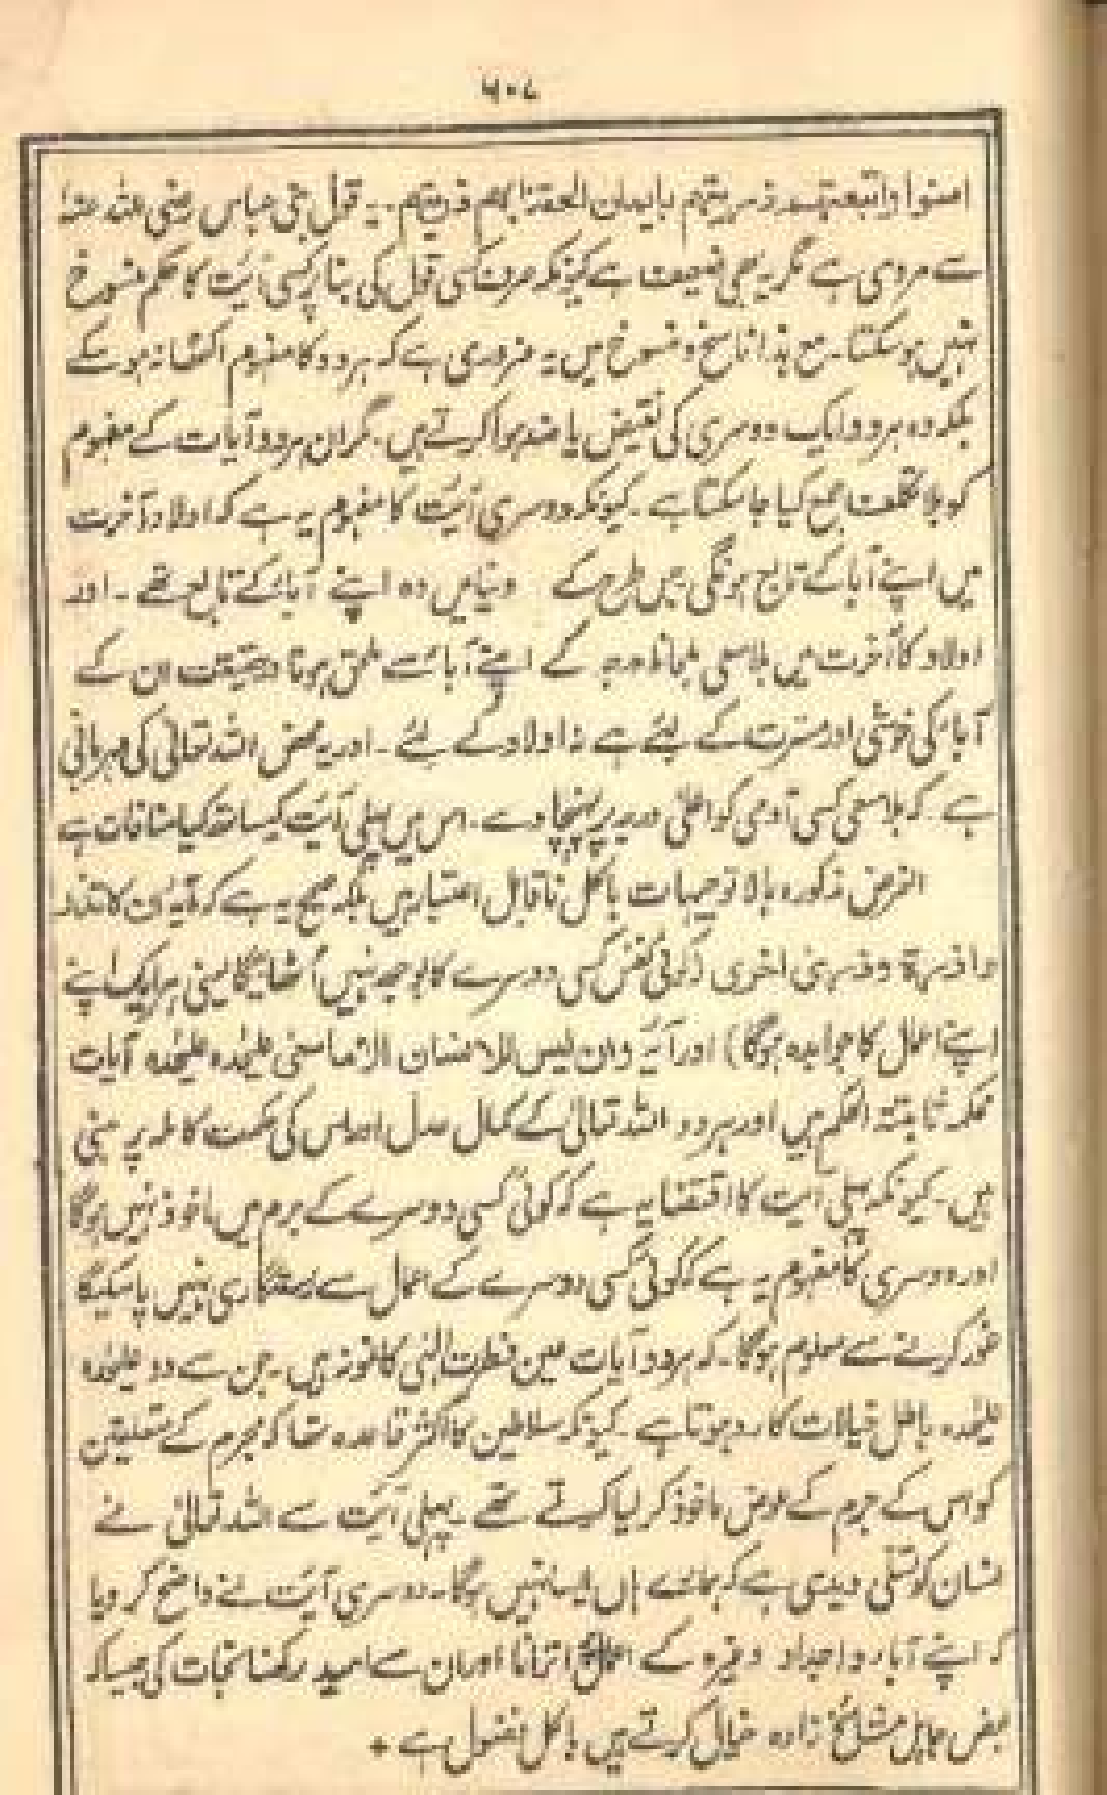 ۵۰۷
امنوا واتبعتهم ذریتهم بایمان الحقنا بهم ذریتهم۔ یہ قول ابن عباس رضی اللہ عنہ
سے مروی ہے مگر یہ بھی ضعیف ہے کیونکہ صرف کسی قول کی بنا پر کسی آیت کا حکم منسوخ
نہیں ہو سکتا۔ مع ہذا ناسخ و منسوخ میں یہ ضروری ہے کہ ہر دو کا مفہوم اکٹھا نہ ہو سکے
بلکہ وہ ہر دو ایک دوسری کی نقیض یا ضد ہوا کرتے ہیں۔ مگر ان ہر دو آیات کے مفہوم
کو بلا تکلف جمع کیا جا سکتا ہے۔ کیونکہ دوسری آیت کا مفہوم یہ ہے کہ اولاد آخرت
میں اپنے آباء کے تابع ہونگی جس طرح کے دنیا میں وہ اپنے آباء کے تابع تھے۔ اور
اولاد کا آخرت میں بلا سعی بلحاظ درجہ کے اپنے آباء سے ملحق ہونا درحقیقت ان کے
آباء کی خوشی اور مسرت کے لئے ہے نہ اولاد کے لئے۔ اور یہ محض اللہ تعالیٰ کی مہربانی
ہے۔ کہ بلا سعی کسی آدمی کو اعلیٰ درجہ پر پہنچا دے۔ اس میں پہلی آیت کیساتھ کیا منافات ہے
الغرض مذکورہ بالا توجیہات بالکل ناقابل اعتبار ہیں بلکہ صحیح یہ ہے کہ آیۃ ان لا تزر
وازرة وزر اخری (کوئی نفس کسی دوسرے کا بوجھ نہیں اُٹھائیگا یعنی ہر ایک اپنے
اپنے اعمال کا جوابدہ ہوگا) اور آیۃ وان لیس للانسان الا ما سعی علیحدہ علیحدہ آیات
محکمہ ثابتۃ الحکم ہیں اور ہر دو اللہ تعالیٰ کے کمال عدل اور اس کی حکمت کاملہ پر مبنی
ہیں۔ کیونکہ پہلی آیت کا اقتضا یہ ہے کہ کوئی کسی دوسرے کے جرم میں ماخوذ نہیں ہوگا
اور دوسری کا مفہوم یہ ہے کہ کوئی کسی دوسرے کے اعمال سے رستگاری نہیں پا سکیگا
غور کرنے سے معلوم ہوگا۔ کہ ہر دو آیات عین فطرت الٰہی کا نمونہ ہیں۔ جن سے دو علیحدہ
علیحدہ باطل خیالات کا رد ہوتا ہے۔ کیونکہ سلاطین کا اکثر قاعدہ تھا کہ مجرم کے متعلقین
کو اس کے جرم کے عوض ماخوذ کر لیا کرتے تھے۔ پہلی آیت سے اللہ تعالیٰ نے
انسان کو تسلّی دیدی ہے کہ ہمارے ہاں ایسا نہیں ہوگا۔ دوسری آیت نے واضح کر دیا
کہ اپنے آباء و اجداد وغیرہ کے اعمال پر اترانا اور ان سے امید رکھنا نجات کی جیسا کہ
بعض جاہل مشائخ زادہ خیال کرتے ہیں بالکل فضول ہے +